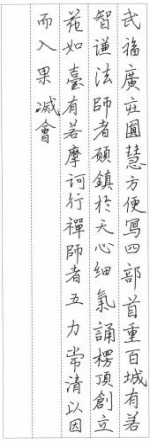 武福廣莊圓慧方便寫四部首重百城有若
智謙法師者碩鎮於天心細氣誦楞頂創立
菴如臺有若摩訶行禪師者五力常清以因
而入果減會